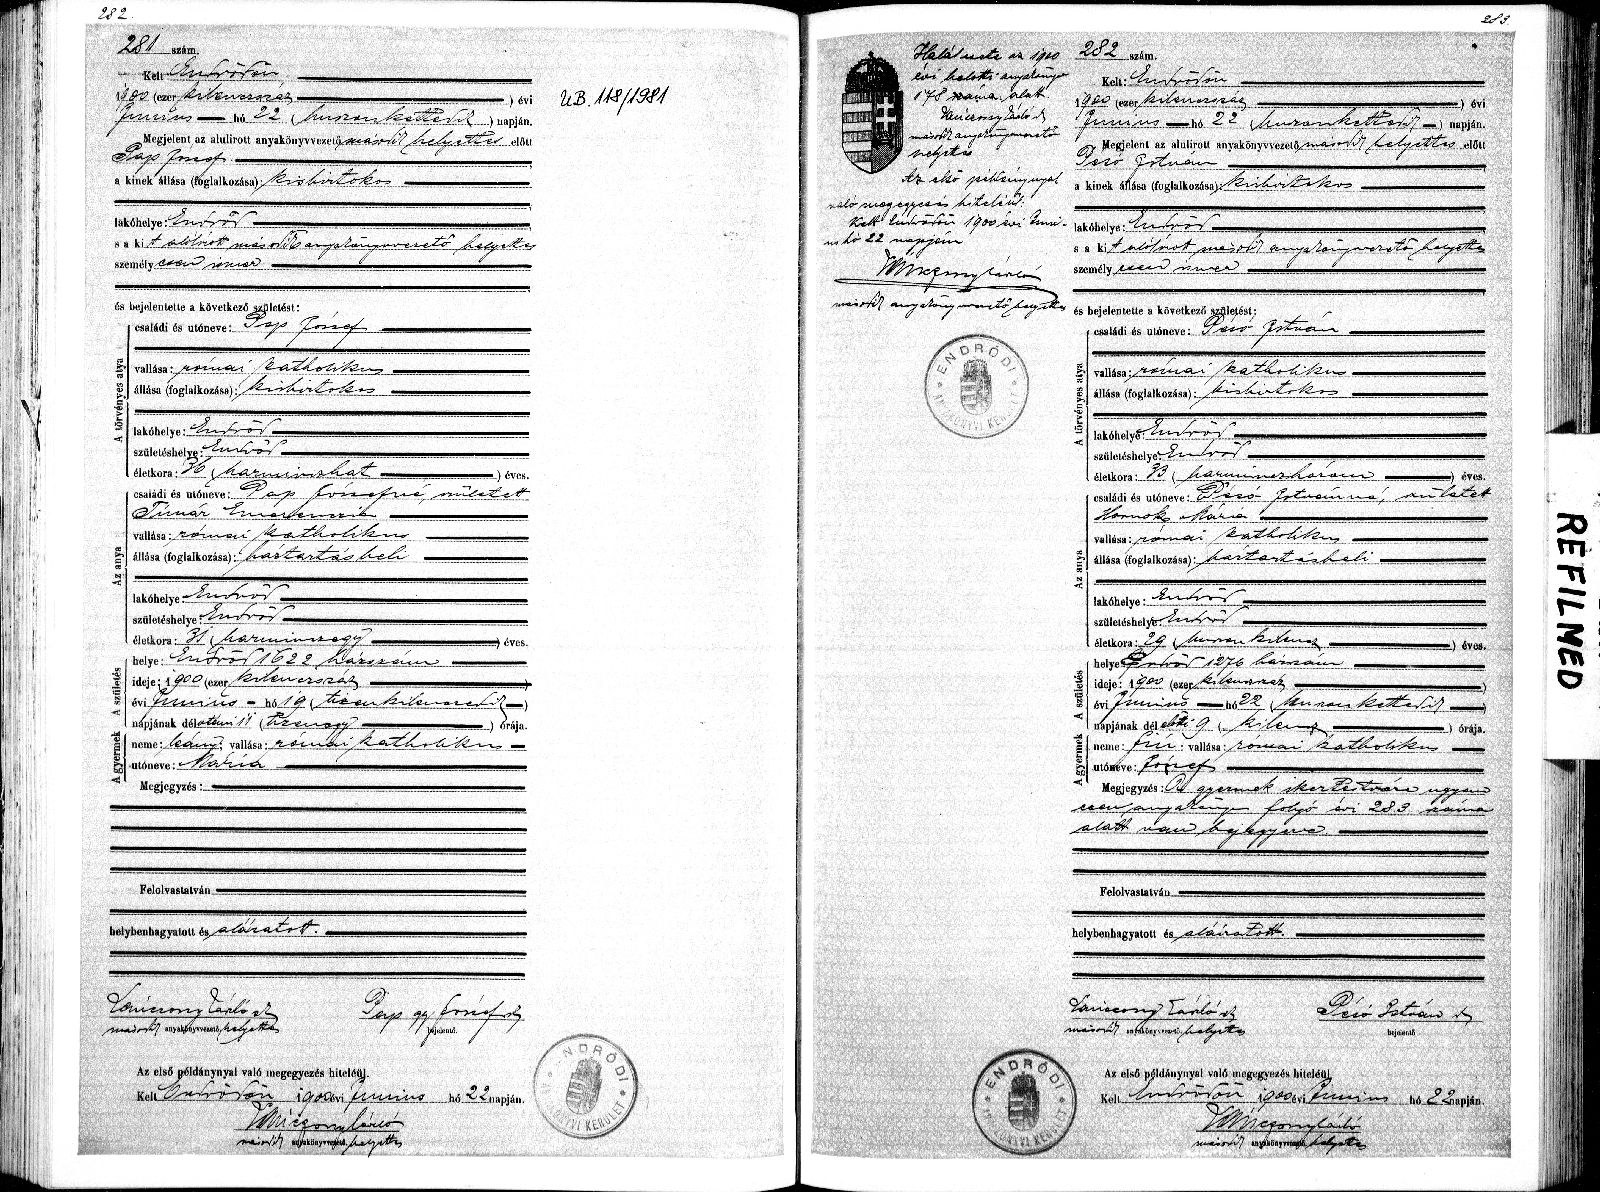 282.
281 szám.
Kelt Endrődön
1900 (ezer kilencszáz ) évi
Junius hó 22 (huszonkettedik ) napján.
Megjelent az alulirott anyakönyvvezető második helyettes előtt
Pap József
a kinek állása (foglalkozása): kisbirtokos
lakóhelye: Endrőd
s a kit alólirott második anyakönyvvezető helyettes
személyesen ismer
és bejelentette a következő születést:
A törvényes atya
családi és utóneve: Pap József
vallása: római katholikus
állása (foglalkozása): kisbirtokos
lakóhelye: Endrőd
születéshelye: Endrőd
életkora: 36 (harminczhat ) éves.
Az anya
családi és utóneve: Pap Józsefné, született
Timár Emerenczia
vallása: római katholikus
állása (foglalkozása): háztartásbeli
lakóhelye Endrőd
születéshelye: Endrőd
életkora: 31 (harminczegy ) éves.
A születés
helye: Endrőd 1622 házszám
ideje: 1900 (ezer kilenczszáz )
évi Junius hó 19 (tizenkilenczedik )
napjának délutáni 11 (tizenegy ) órája.
A gyermek
neme: leány; vallása: római katholikus
utóneve: Mária
Megjegyzés:
Felolvastatván
helybenhagyatott és aláiratott.
Pap gy József
második anyakönyvvezető helyettes
bejelentő.
Az első példánynyal való megegyezés hiteléül.
Kelt Endrődön 1900 évi Junius hó 22 napján.
második anyakönyvvezető helyettes
UB. 118/1981
ENDRŐDI
ANYAKÖNYVI KERÜLET
283.
Halálesete az 1900
évi halotti anyakönyv
178 száma alatt
második anyakönyvvezető
helyettes
Az első példánynyal
való megegyezés hiteléül.
Kelt Endrődön 1900 évi Juni-
us hó 22 napján
második anyakönyvvezető helyettes
ENDRŐDI
ANYAKÖNYVI KERÜLET
282 szám.
Kelt: Endrődön
1900 (ezer kilenczszáz ) évi
Junius hó 22 (huszonkettedik ) napján.
Megjelent az alulirott anyakönyvvezető második helyettes előtt
István
a kinek állása (foglalkozása): kisbirtokos
lakóhelye: Endrőd
s a kit alólirott második anyakönyvvezető helyettes
személyesen ismer
és bejelentette a következő születést:
A törvényes atya
családi és utóneve: István
vallása: római katholikus
állása (foglalkozása): kisbirtokos
lakóhelye: Endrőd
születéshelye: Endrőd
életkora: 33 (harminczhárom ) éves.
Az anya
családi és utóneve: Istvánné, született
Hornok Mária
vallása: római katholikus
állása (foglalkozása): háztartásbeli
lakóhelye: Endrőd
születéshelye: Endrőd
életkora: 29 (huszonkilencz ) éves.
A születés
helye: Endrőd 1276 házszám
ideje: 1900 (ezer kilenczszáz )
évi Junius hó 22 (huszonkettedik )
napjának délelőtti 9 (kilencz ) órája.
A gyermek
neme: fiú; vallása: római katholikus
utóneve: József
Megjegyzés: A gyermek ikertestvére ugyan
ezen anyakönyv folyó évi 283 száma
alatt van bejegyezve.
Felolvastatván
helybenhagyatott és aláiratott.
István
második anyakönyvvezető helyettes
bejelentő
Az első példánynyal való megegyezés hiteléül.
Kelt Endrődön 1900 évi Junius hó 22 napján.
második anyakönyvvezető helyettes
ENDRŐDI
ANYAKÖNYVI KERÜLET
REFILMED